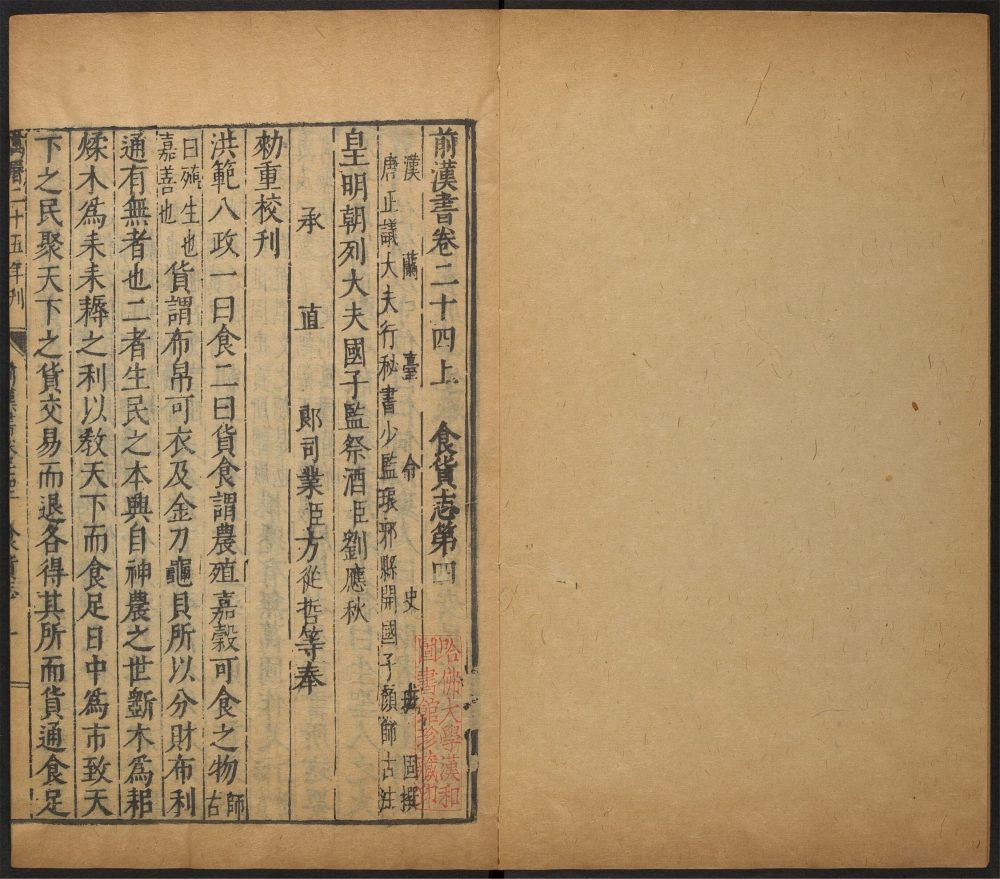 前漢書卷二十四上 食貨志第四
漢蘭臺令史班固撰
唐正議大夫行秘書少監琅邪縣開國子顏師古注
皇明朝列大夫國子監祭酒臣劉應秋
承直郎司業臣方從哲等奉
勑重校刊
洪範八政一曰食二曰貨食謂農殖嘉穀可食之物師古
曰殖生也嘉善也貨謂布帛可衣及金刀龜貝所以分財布利
通有無者也二者生民之本興自神農之世斲木爲耜
煣木爲耒耒耨之利以教天下而食足日中爲市致天
下之民聚天下之貨交易而退各得其所而貨通食足
萬曆二十五年刊 食貨志 一
哈佛大學漢和
圖書館珍藏印